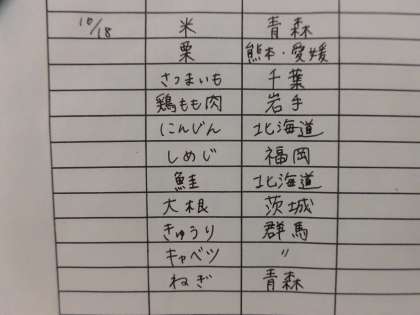 10/18 米 青森
栗 熊本・愛媛
さつまいも 千葉
鶏もも肉 岩手
にんじん 北海道
しめじ 福岡
鮭 北海道
大根 茨城
きゅうり 群馬
キャベツ 〃
ねぎ 青森